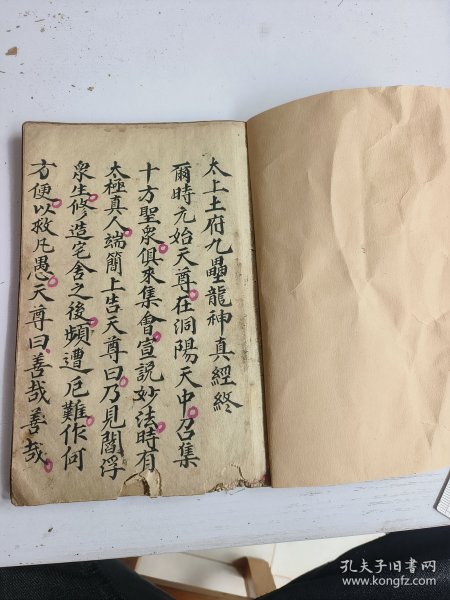 太上土府九壘龍神真經終
爾時元始天尊在洞陽天中召集
十方聖衆俱來集會宣説妙法時有
太極真人端簡上告天尊曰乃見閻浮
衆生修造宅舍之後頻遭厄難作何
方便以救凡愚天尊曰善哉善哉
孔夫子旧书网
www.kongfz.com